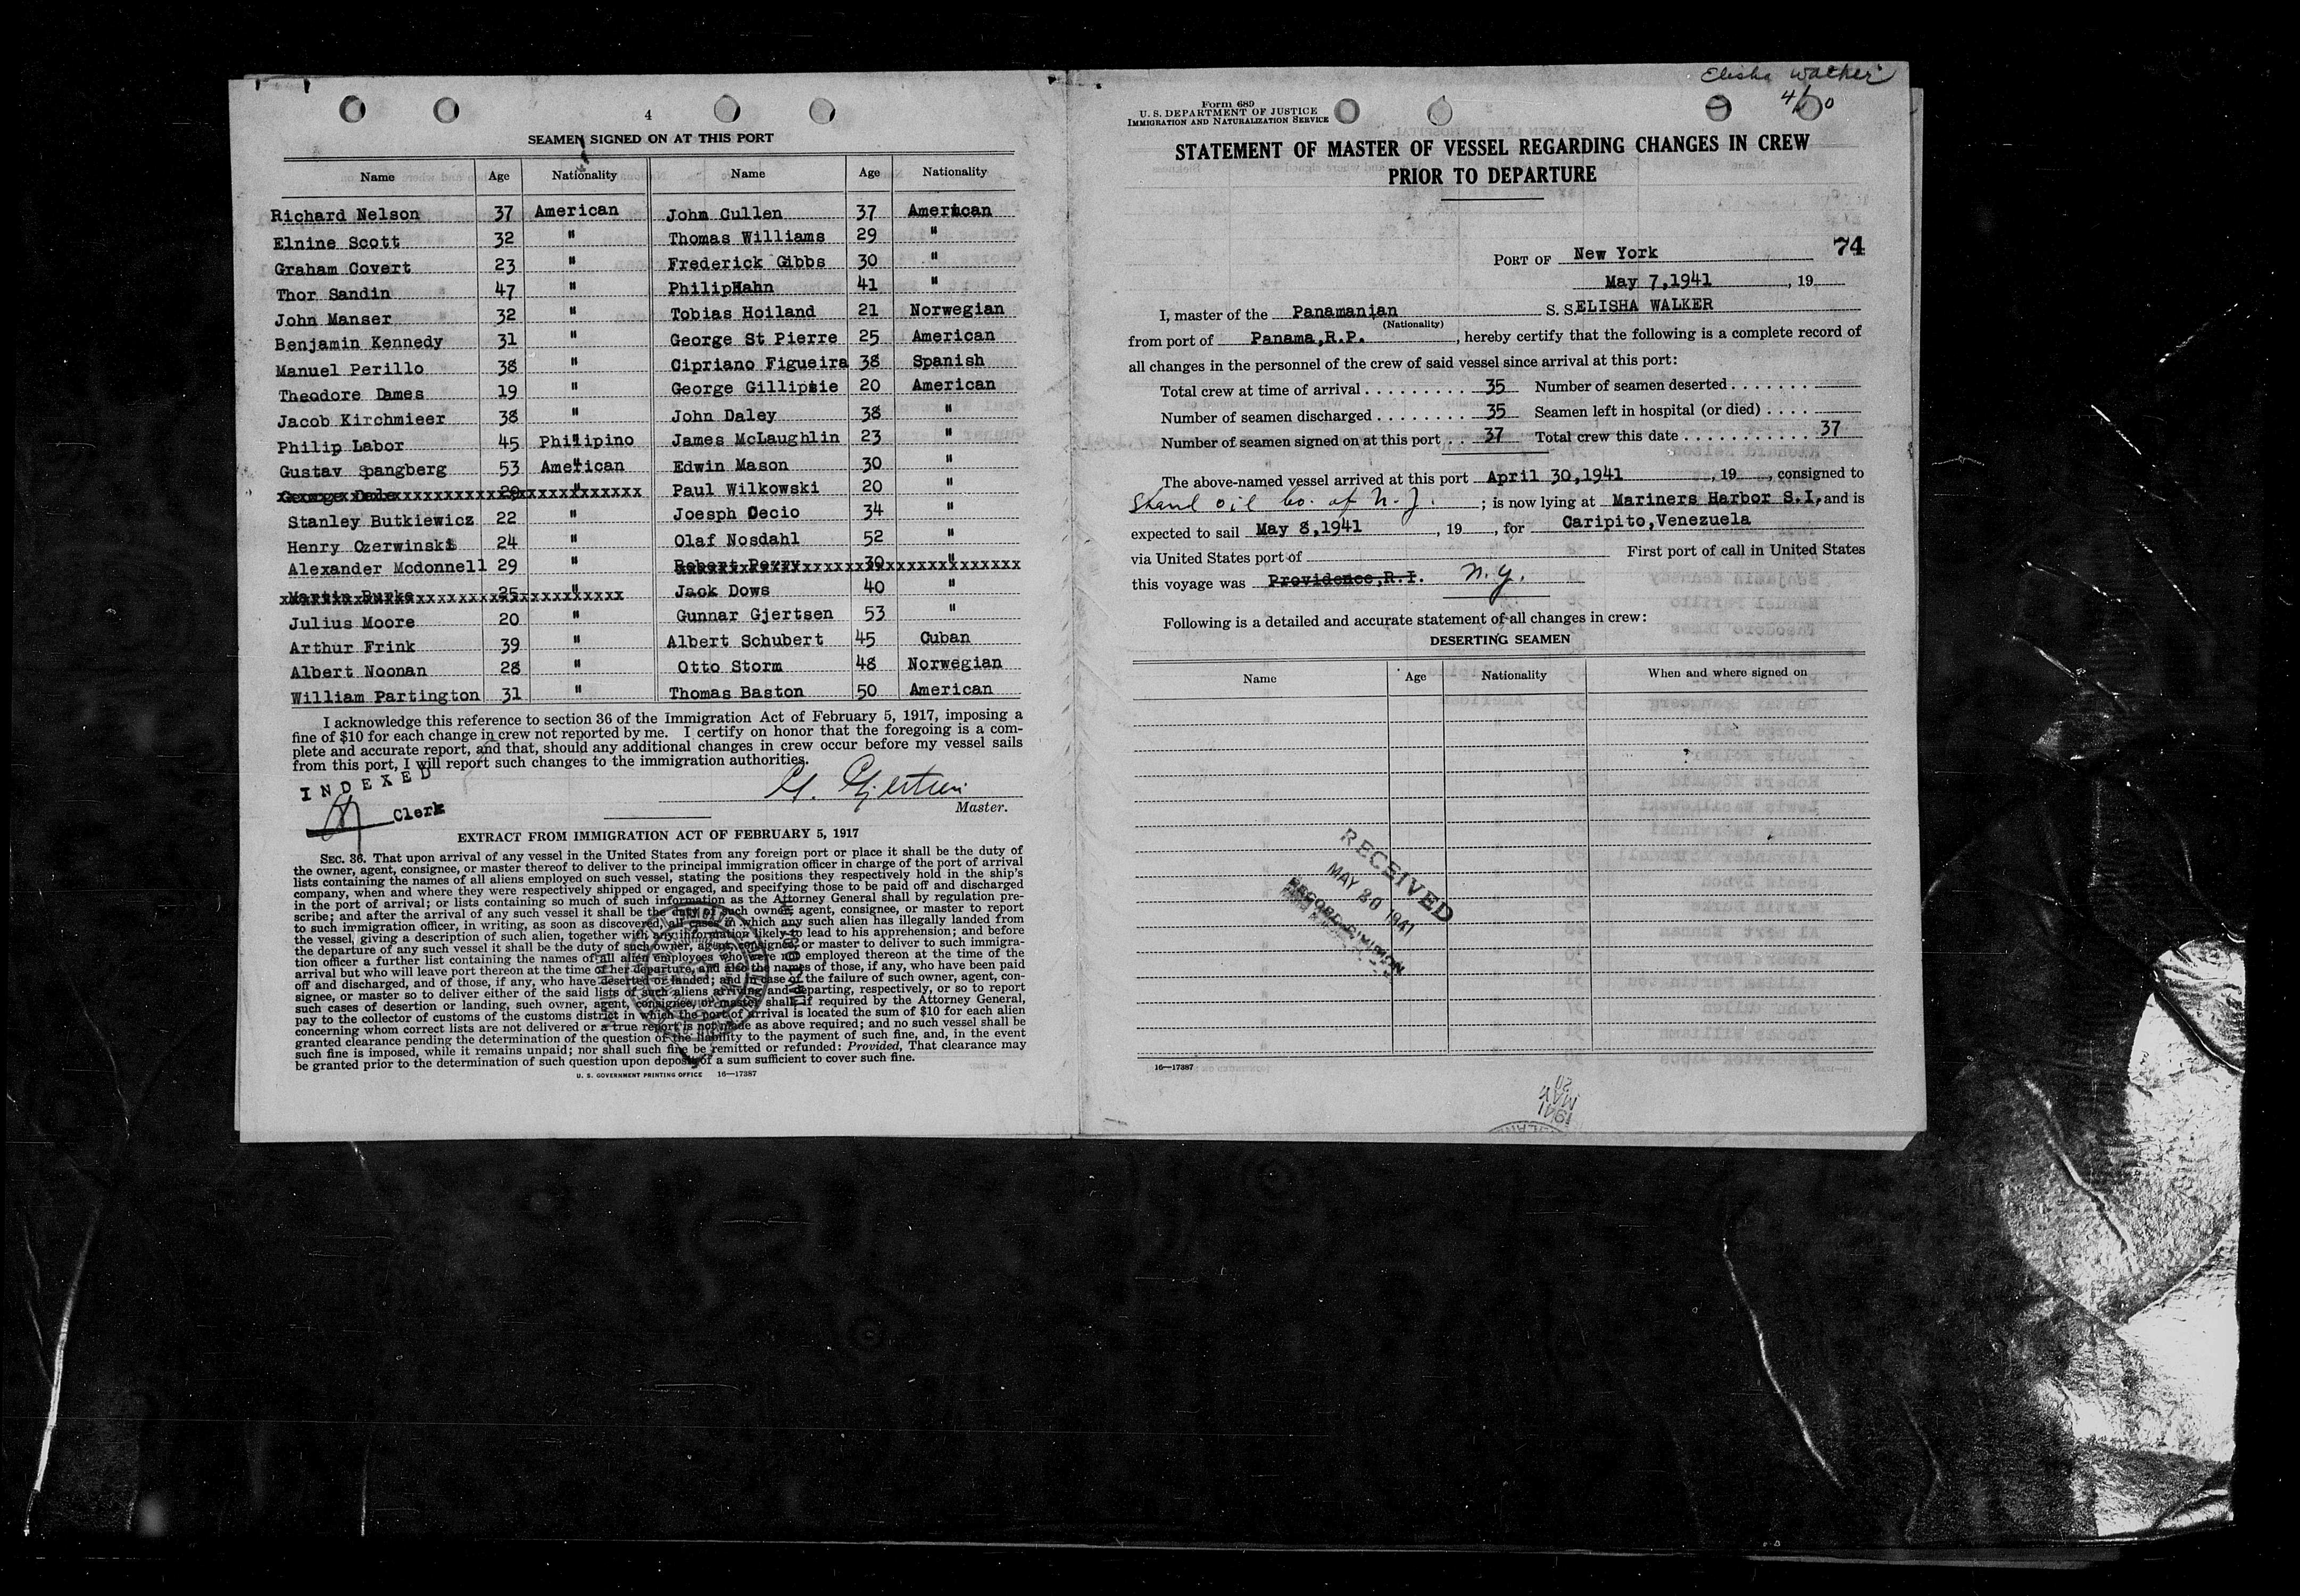 4
SEAMEN SIGNED ON AT THIS PORT
Name Age Nationality Name Age Nationality
Richard Nelson 37 American John Cullen 37 American
Elnine Scott 32 " Thomas Williams 29 "
Graham Covert 23 " Frederick Gibbs 30 "
Thor Sandin 47 " PhilipHahn 41 "
John Manser 32 " Tobias Hoiland 21 Norwegian
Benjamin Kennedy 31 " George St Pierre 25 American
Manuel Perillo 38 " Cipriano Figueira 38 Spanish
Theodore Dames 19 " George Gillipsie 20 American
Jacob Kirchmieer 38 " John Daley 38 "
Philip Labor 45 Philipino James McLaughlin 23 "
Gustav Spangberg 53 American Edwin Mason 30 "
George Dale 29 " Paul Wilkowski 20 "
Stanley Butkiewicz 22 " Joesph Decio 34 "
Henry Czerwinski 24 " Olaf Nosdahl 52 "
Alexander Mcdonnell 29 " Robert Perry 30 "
Martin Burke 25 " Jack Dows 40 "
Julius Moore 20 " Gunnar Gjertsen 53 "
Arthur Frink 39 " Albert Schubert 45 Cuban
Albert Noonan 28 " Otto Storm 48 Norwegian
William Partington 31 " Thomas Baston 50 American
I acknowledge this reference to section 36 of the Immigration Act of February 5, 1917, imposing a
fine of $10 for each change in crew not reported by me. I certify on honor that the foregoing is a com-
plete and accurate report, and that, should any additional changes in crew occur before my vessel sails
from this port, I will report such changes to the immigration authorities.
INDEXED
G. Gjertsen
Clerk
Master.
EXTRACT FROM IMMIGRATION ACT OF FEBRUARY 5, 1917
SEC. 36. That upon arrival of any vessel in the United States from any foreign port or place it shall be the duty of
the owner, agent, consignee, or master thereof to deliver to the principal immigration officer in charge of the port of arrival
lists containing the names of all aliens employed on such vessel, stating the positions they respectively hold in the ship's
company, when and where they were respectively shipped or engaged, and specifying those to be paid off and discharged
in the port of arrival; or lists containing so much of such information as the Attorney General shall by regulation pre-
scribe; and after the arrival of any such vessel it shall be the duty of such owner, agent, consignee, or master to report
to such immigration officer, in writing, as soon as discovered, all cases in which any such alien has illegally landed from
the vessel, giving a description of such alien, together with any information likely to lead to his apprehension; and before
the departure of any such vessel it shall be the duty of such owner, agent, consignee, or master to deliver to such immigra-
tion officer a further list containing the names of all alien employees who were not employed thereon at the time of the
arrival but who will leave port thereon at the time of her departure, and also the names of those, if any, who have been paid
off and discharged, and of those, if any, who have deserted or landed; and in case of the failure of such owner, agent, con-
signee, or master so to deliver either of the said lists of such aliens arriving and departing, respectively, or so to report
such cases of desertion or landing, such owner, agent, consignee, or master shall, if required by the Attorney General,
pay to the collector of customs of the customs district in which the port of arrival is located the sum of $10 for each alien
concerning whom correct lists are not delivered or a true report is not made as above required; and no such vessel shall be
granted clearance pending the determination of the question of the liability to the payment of such fine, and, in the event
such fine is imposed, while it remains unpaid; nor shall such fine be remitted or refunded: Provided, That clearance may
be granted prior to the determination of such question upon deposit of a sum sufficient to cover such fine.
U. S. GOVERNMENT PRINTING OFFICE 16—17387
Elisha Walker
4/30
Form 689
U. S. DEPARTMENT OF JUSTICE
IMMIGRATION AND NATURALIZATION SERVICE
STATEMENT OF MASTER OF VESSEL REGARDING CHANGES IN CREW
PRIOR TO DEPARTURE
PORT OF New York 74
May 7,1941, 19
I, master of the Panamanian S. S. ELISHA WALKER
(Nationality)
from port of Panama,R.P., hereby certify that the following is a complete record of
all changes in the personnel of the crew of said vessel since arrival at this port:
Total crew at time of arrival 35 Number of seamen deserted
Number of seamen discharged 35 Seamen left in hospital (or died)
Number of seamen signed on at this port 37 Total crew this date 37
The above-named vessel arrived at this port April 30,1941, 19, consigned to
Stand Oil Co. of N.J. ; is now lying at Mariners Harbor S.I, and is
expected to sail May 8,1941, 19, for Caripito,Venezuela
via United States port of First port of call in United States
this voyage was Providence,R.I. N.Y.
Following is a detailed and accurate statement of all changes in crew:
DESERTING SEAMEN
Name Age Nationality When and where signed on
RECEIVED
MAY 20 1941
RECORD DIVISION
16—17387
1941
MAY
20